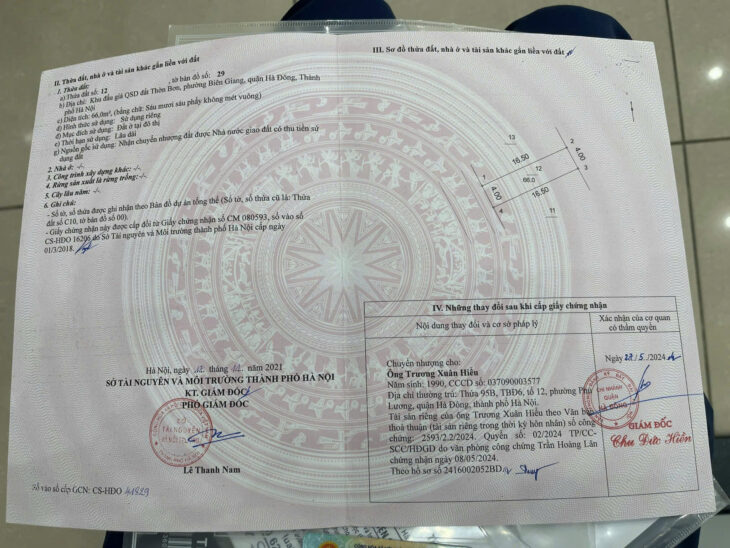 II. Thửa đất, nhà ở và tài sản khác gắn liền với đất
1. Thửa đất:
a) Thửa đất số: 12 , tờ bản đồ số: 29
b) Địa chỉ: Khu đấu giá QSD đất Thôn Bơn, phường Biên Giang, quận Hà Đông, Thành
phố Hà Nội
c) Diện tích: 66,0m², (bằng chữ: Sáu mươi sáu phẩy không mét vuông)
d) Hình thức sử dụng: Sử dụng riêng
đ) Mục đích sử dụng: Đất ở tại đô thị
e) Thời hạn sử dụng: Lâu dài
g) Nguồn gốc sử dụng: Nhận chuyển nhượng đất được Nhà nước giao đất có thu tiền sử
dụng đất
2. Nhà ở: -/-
3. Công trình xây dựng khác: -/-
4. Rừng sản xuất là rừng trồng: -/-
5. Cây lâu năm: -/-
6. Ghi chú:
- Số tờ, số thửa được ghi nhận theo Bản đồ dự án tổng thể (Số tờ, số thửa cũ là: Thửa
đất số C10, tờ bản đồ số 00).
- Giấy chứng nhận này được cấp đổi từ Giấy chứng nhận số CM 080593, số vào sổ
CS-HĐO 16206 do Sở Tài nguyên và Môi trường thành phố Hà Nội cấp ngày
01/3/2018.
Hà Nội, ngày tháng năm 2021
SỞ TÀI NGUYÊN VÀ MÔI TRƯỜNG THÀNH PHỐ HÀ NỘI
KT. GIÁM ĐỐC
PHÓ GIÁM ĐỐC
Lê Thanh Nam
Số vào sổ cấp GCN: CS-HĐO 41829
III. Sơ đồ thửa đất, nhà ở và tài sản khác gắn liền với đất
13
2
16.50
4.00
12
66.0
3
1
4.00
16.50
4
11
IV. Những thay đổi sau khi cấp giấy chứng nhận
Nội dung thay đổi và cơ sở pháp lý
Xác nhận của cơ quan
có thẩm quyền
Chuyển nhượng cho:
Ông Trương Xuân Hiếu
Năm sinh: 1990, CCCD số: 037090003577
Địa chỉ thường trú: Thửa 95B, TBĐ6, tổ 12, phường Phú
Lương, quận Hà Đông, thành phố Hà Nội.
Tài sản riêng của ông Trương Xuân Hiếu theo Văn bản
thoả thuận (tài sản riêng trong thời kỳ hôn nhân) số công
chứng: 2593/2.2/2024. Quyển số: 02/2024 TP/CC-
SCC/HĐGD do văn phòng công chứng Trần Hoàng Lân
chứng nhận ngày 08/05/2024.
Theo hồ sơ số 2416002052BD
Ngày 5/2024
CHI NHÁNH
QUẬN
HÀ ĐÔNG
GIÁM ĐỐC
Chu Đức Hiền